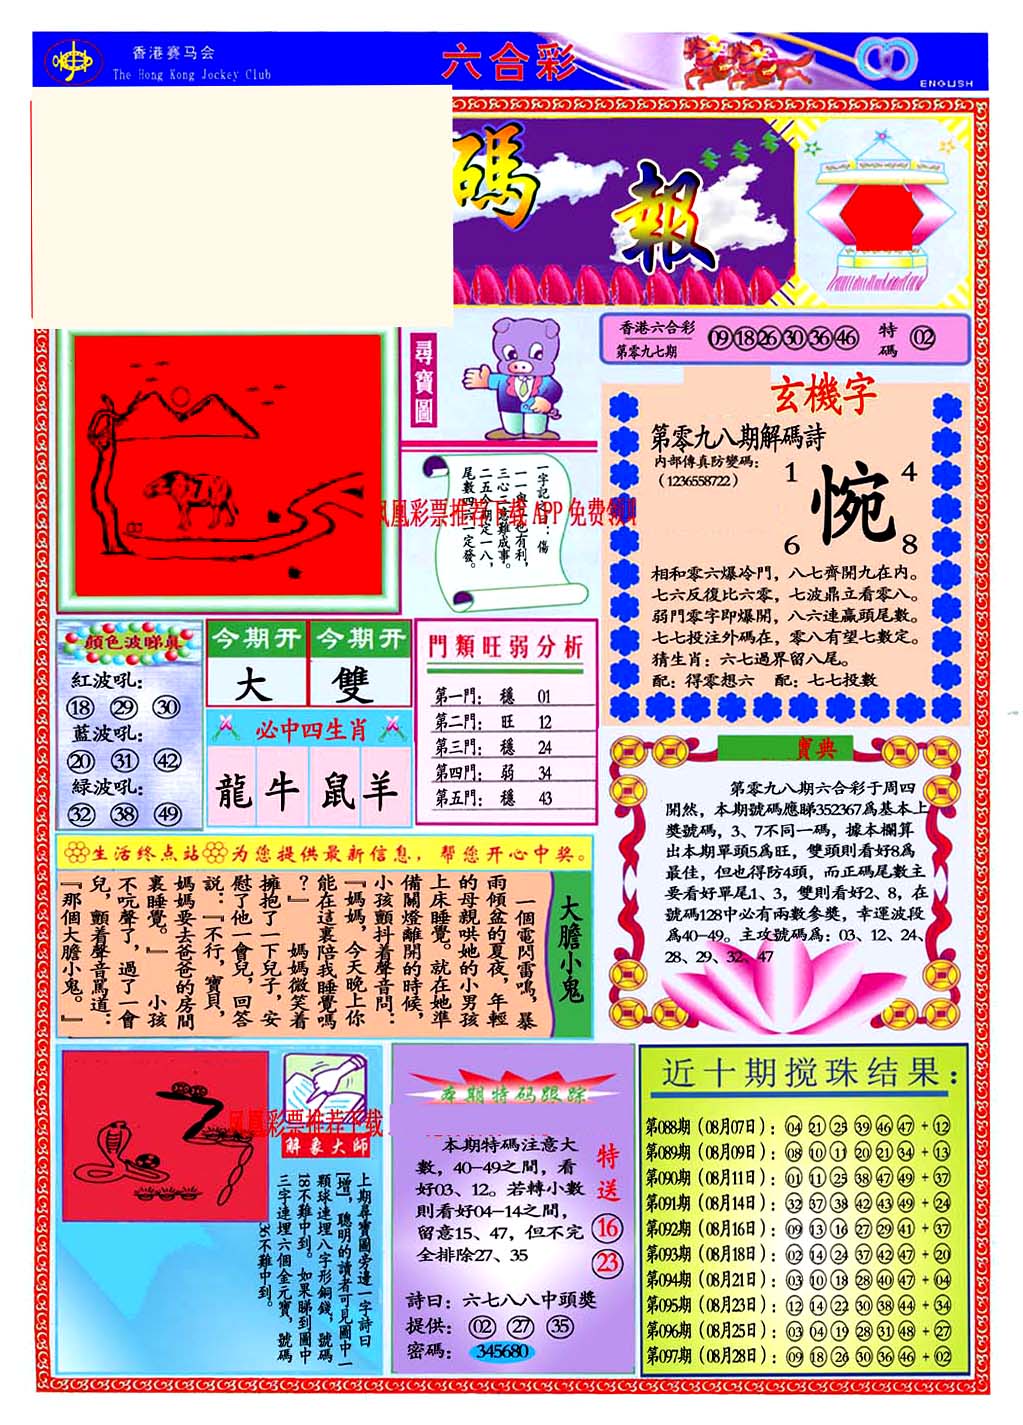 香港赛马会
The Hong Kong Jockey Club
六合彩
ENGLISH
碼
報
尋寶圖
香港六合彩
第零九七期
09 18 26 30 36 46
特碼
02
玄機字
第零九八期解碼詩
内部傳真防變碼:
(1236558722)
1
4
惋
6
8
相和零六爆冷門，八七齊開九在内。
七六反復比六零，七波鼎立看零八。
弱門零字即爆開，八六連贏頭尾數。
七七投注外碼在，零八有望七數定。
猜生肖：六七過界留八尾。
配：得零想六 配：七七投數
一字記之曰：傷
三心二意難成事。
二五今期定一八，
尾數四六一定發。
凤凰彩票推荐下载 APP 免费领
顏色波睇真
紅波吼：
18 29 30
藍波吼：
20 31 42
緑波吼：
32 38 49
今期开
今期开
大
雙
必中四生肖
龍
牛
鼠
羊
門類旺弱分析
第一門： 穩 01
第二門： 旺 12
第三門： 穩 24
第四門： 弱 34
第五門： 穩 43
寶典
第零九八期六合彩于周四
開然，本期號碼應睇352367爲基本上
獎號碼，3、7不同一碼，據本欄算
出本期單頭5爲旺，雙頭則看好8爲
最佳，但也得防4頭，而正碼尾數主
要看好單尾1、3，雙則看好2、8，在
號碼128中必有兩數參獎，幸運波段
爲40-49。主攻號碼爲：03、12、24、
28、29、32、47
生活终点站
为您提供最新信息，帮您开心中奖。
大膽小鬼
一個電閃雷鳴，暴
雨傾盆的夏夜，年輕
的母親哄她的小男孩
上床睡覺。就在她準
備關燈離開的時候，
小孩顫抖着聲音問：
『媽媽，今天晚上你
能在這裏陪我睡覺嗎
？』 媽媽微笑着
擁抱了一下兒子，安
慰了他一會兒，回答
説：『不行，寶貝，
媽媽要去爸爸的房間
裏睡覺。』 小孩
不吭聲了，過了一會
兒，顫着聲音罵道：
『那個大膽小鬼。』
凤凰彩票推荐下载
解象大師
上期尋寶圖旁邊一字詩曰
『增』，聰明的讀者可見圖中一
顆球連埋八字形銅錢，號碼
18不難中到。如果睇到圖中
三字連埋六個金元寶，號碼
36不難中到。
本期特碼跟踪
本期特碼注意大
數，40-49之間，看
好03、12。若轉小數
則看好04-14之間，
留意15、47，但不完
全排除27、35
特送
16
23
詩曰：六七八八中頭獎
提供： 02 27 35
密碼： 345680
近十期搅珠结果：
第088期（08月07日）：04 21 25 39 46 47 + 12
第089期（08月09日）：08 10 11 20 21 34 + 13
第090期（08月11日）：01 11 25 38 47 49 + 37
第091期（08月14日）：32 37 38 42 43 49 + 24
第092期（08月16日）：09 13 16 27 29 41 + 37
第093期（08月18日）：02 14 24 37 42 47 + 20
第094期（08月21日）：03 10 18 28 40 47 + 04
第095期（08月23日）：12 14 22 30 38 44 + 34
第096期（08月25日）：03 04 19 28 31 48 + 27
第097期（08月28日）：09 18 26 30 36 46 + 02